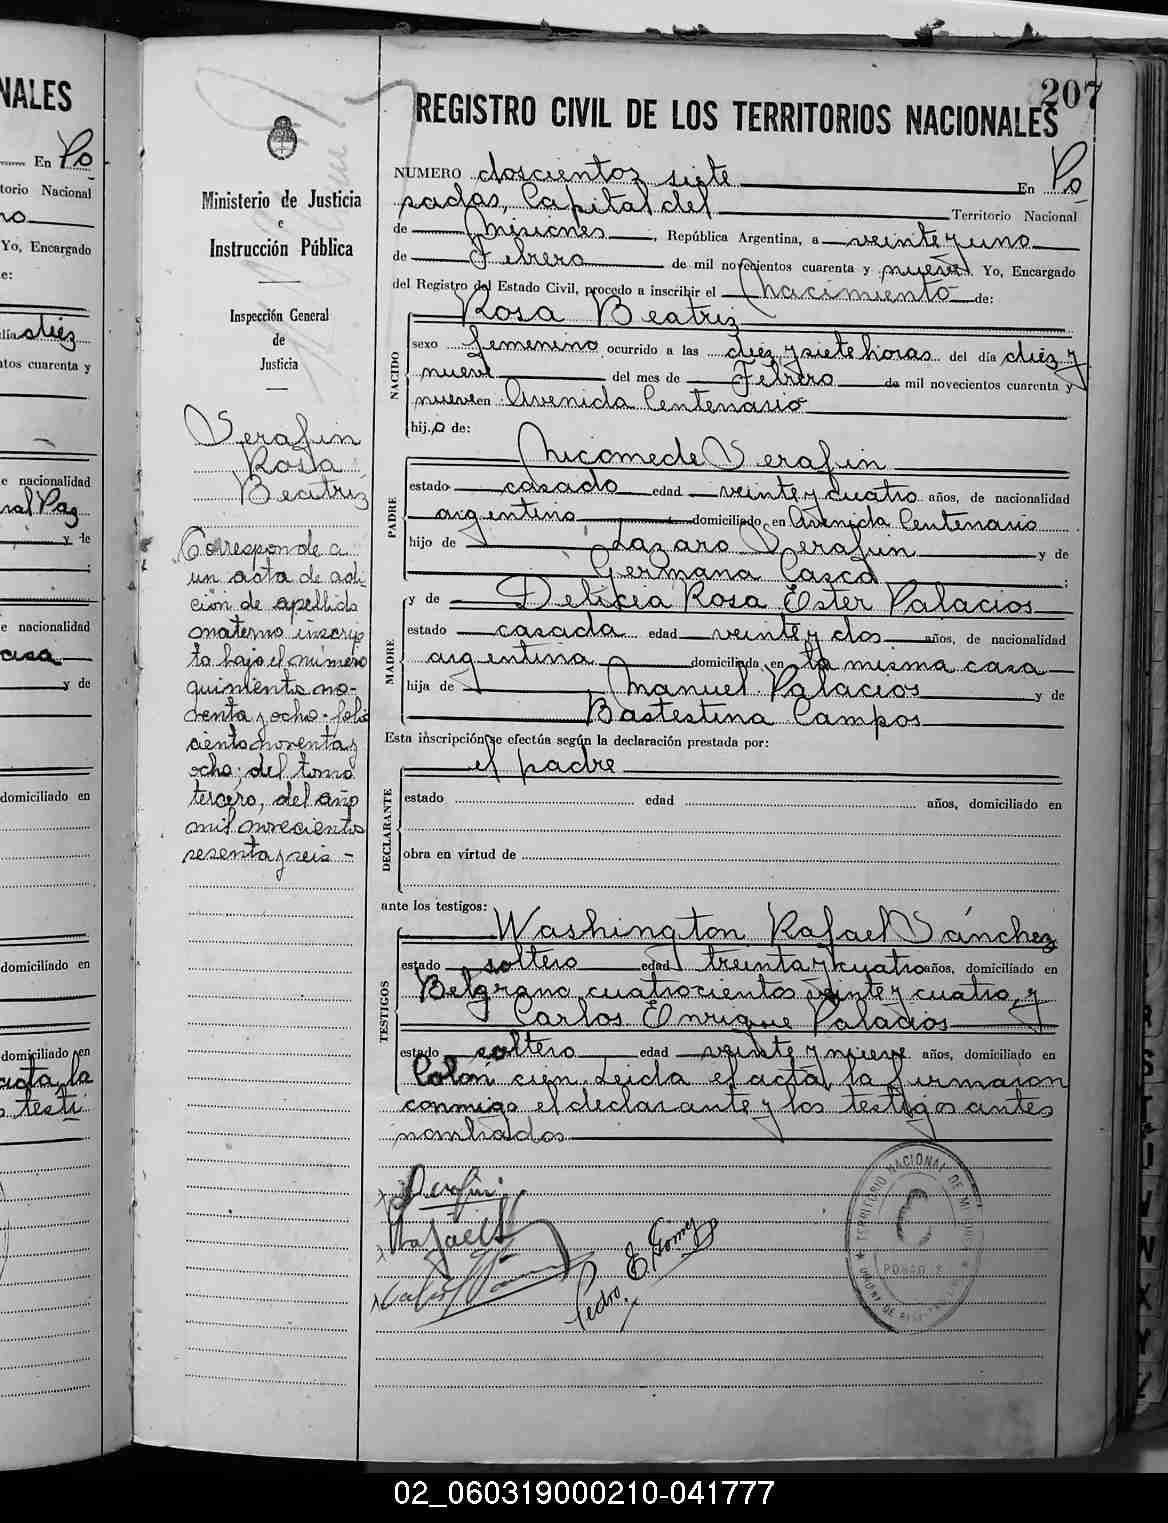 NALES
En Po
torio Nacional
no
Yo, Encargado
e:
día diéz
ntos cuarenta y
e nacionalidad
ral Paz
y de
;
e nacionalidad
casa
y de
domiciliado en
domiciliado en
domiciliado en
acta, la
s testi
207
REGISTRO CIVIL DE LOS TERRITORIOS NACIONALES
Ministerio de Justicia
e
Instrucción Pública
Inspección General
de
Justicia
Serafin
Rosa
Beatriz
Corresponde a
un acta de adi
ción de apellido
materno inscrip
ta bajo el número
quinientos no-
venta y ocho - folio
ciento noventa y
ocho; del tomo
tercero, del año
mil novecientos
sesenta y seis -
NUMERO doscientos siete En Po
sadas, Capital del Territorio Nacional
de Misiones, República Argentina, a veinte y uno
de Febrero de mil novecientos cuarenta y nueve. Yo, Encargado
del Registro del Estado Civil, procedo a inscribir el Nacimiento de:
NACIDO
Rosa Beatriz
sexo femenino ocurrido a las diez y siete horas del día diéz y
nueve del mes de Febrero de mil novecientos cuarenta y
nueve en Avenida Centenario
hija de:
PADRE
Nicomede Serafin
estado casado edad veinte y cuatro años, de nacionalidad
argentino domiciliado en Avenida Centenario
hijo de Lazaro Serafin y de
Germana Casco ;
MADRE
y de Delicia Rosa Ester Palacios
estado casada edad veinte y dos años, de nacionalidad
argentina domiciliada en la misma casa
hija de Manuel Palacios y de
Bastestina Campos
Esta inscripción se efectúa según la declaración prestada por:
DECLARANTE
el padre
estado edad años, domiciliado en
obra en virtud de
ante los testigos:
TESTIGOS
Washington Rafael Sánchez
estado soltero edad treinta y cuatro años, domiciliado en
Belgrano cuatrocientos veinte y cuatro, y
Carlos Enrique Palacios
estado soltero edad veinte y nueve años, domiciliado en
Colón cien. Leida el acta, la firmaron
conmigo el declarante y los testigos antes
nombrados
Serafin
Rafael S
Pedro E. Gómez
TERRITORIO NACIONAL DE MISIONES
POSADAS
02_060319000210-041777